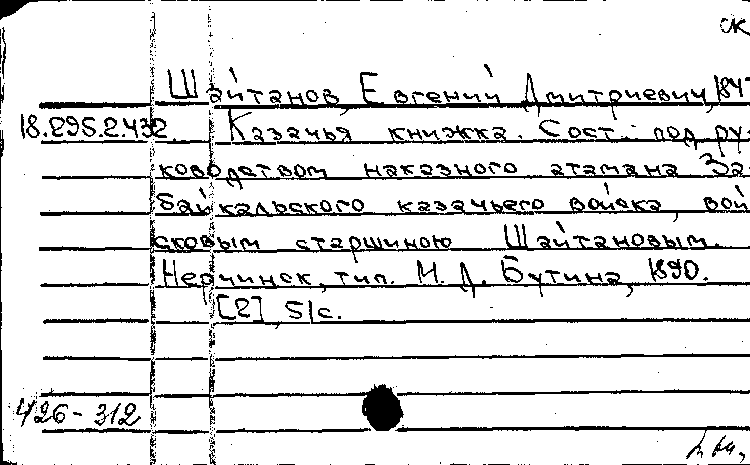 ск
Шайтанов, Евгений Дмитриевич, 184
18.295.2.432. Казачья книжка. Сост. под ру-
ководством наказного атамана За-
байкальского казачьего войска, вой-
сковым старшиною Шайтановым.
Нерчинск, тип. М. Д. Бутина, 1890.
[2], 51с.
426-312